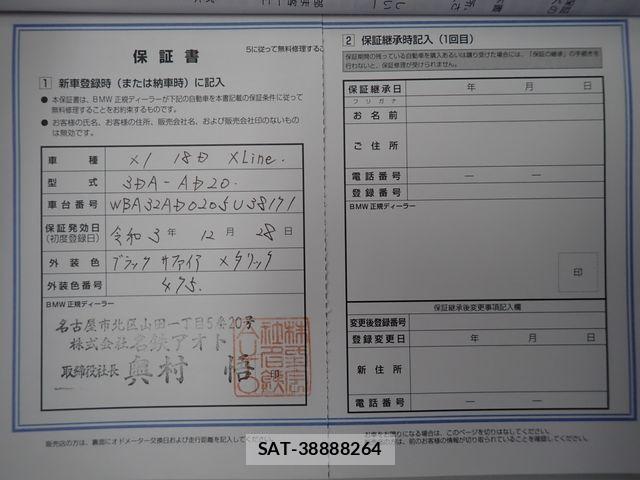 保証書
5に従って無料修理するこ
1 新車登録時（または納車時）に記入
● 本保証書は、BMW正規ディーラーが下記の自動車を本書記載の保証条件に従って
無料修理することをお約束するものです。
● お客様の氏名、お客様の住所、販売会社名、および販売会社印のないもの
は無効です。
車種 X1 18d xLine.
型式 3DA-AD20.
車台番号 WBA32AD0205U38171
保証発効日
（初度登録日） 令和3年 12月 28日
外装色 ブラック サファイア メタリック
外装色番号 475.
BMW正規ディーラー
名古屋市北区山田一丁目5番20号
株式会社名鉄アオト
取締役社長 奥村 悟 印
2 保証継承時記入（1回目）
保証期間の残っている自動車を購入あるいは譲り受けた場合には、「保証の継承」の手続きを
行わないと、保証修理が受けられません。
保証継承日 年 月 日
フリガナ
お名前
ご住所
電話番号 — —
登録番号
BMW正規ディーラー
印
保証継承後変更事項記入欄
変更後登録番号
登録変更日 年 月 日
新住所
電話番号 — —
販売店の方は、裏面にオドメーター交換日および走行距離を記入してください。
お車をお譲りになる場合は、このページを切りはなしてください。
販売店の方は、前のお客様の情報が切り取られていることを確認してください。
SAT-38888264